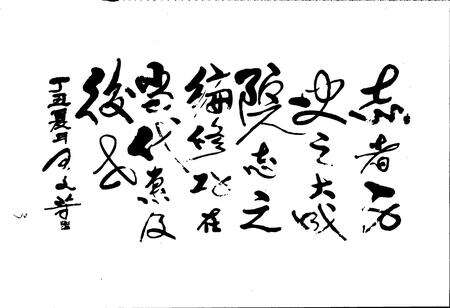 志者
史之大成
院志之
编修功在
当代惠及
後世
丁丑夏